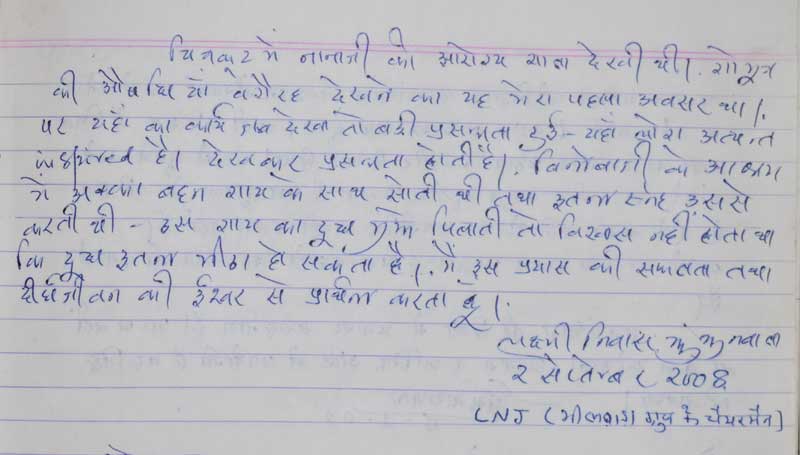 चित्रकूट में नानाजी की आरोग्य शाला देखी थी। गोमूत्र
की औषधियाँ वगैरह देखने का यह मेरा पहला अवसर था।
पर यहाँ का कार्य जब देखा तो बड़ी प्रसन्नता हुई - यहाँ लोग अत्यन्त
inspired है। देखकर प्रसन्नता होती है। विनोबाजी के आश्रम
में बहन गाय के साथ सोती थी तथा इतना स्नेह उससे
करती थी - उस गाय का दूध मुझे पिलाती तो विश्वास नहीं होता था
कि दूध इतना मीठा हो सकता है। मैं इस प्रयास की सफलता तथा
दीर्घजीवन की ईश्वर से प्रार्थना करता हूँ।
लक्ष्मी निवास झुंझुनवाला
२ सेप्तेम्बर २००६
LNJ (भीलवाड़ा ग्रुप के चैयरमैन)